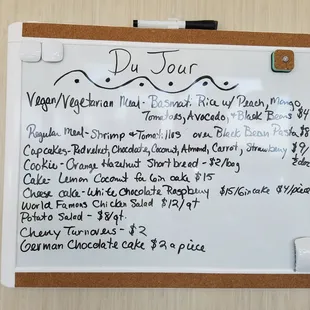 Du Jour
Vegan/Vegetarian Meal - Basmati Rice w/ Peach, Mango,
Tomatoes, Avocado, & Black Beans $4
Regular Meal - Shrimp & Tomatillos over Black Bean Pasta $8
Cupcakes - Red velvet, Chocolate, Coconut, Almond, Carrot, Strawberry $9/
2doz
Cookie - Orange Hazelnut Shortbread - $2/bag
Cake - Lemon Coconut for 6in cake $15
Cheese cake - White Chocolate Raspberry $15/6in cake $4/piece
World Famous Chicken Salad $12/qt
Potato Salad - $8/qt.
Cherry Turnovers - $2
German Chocolate cake $2 a piece